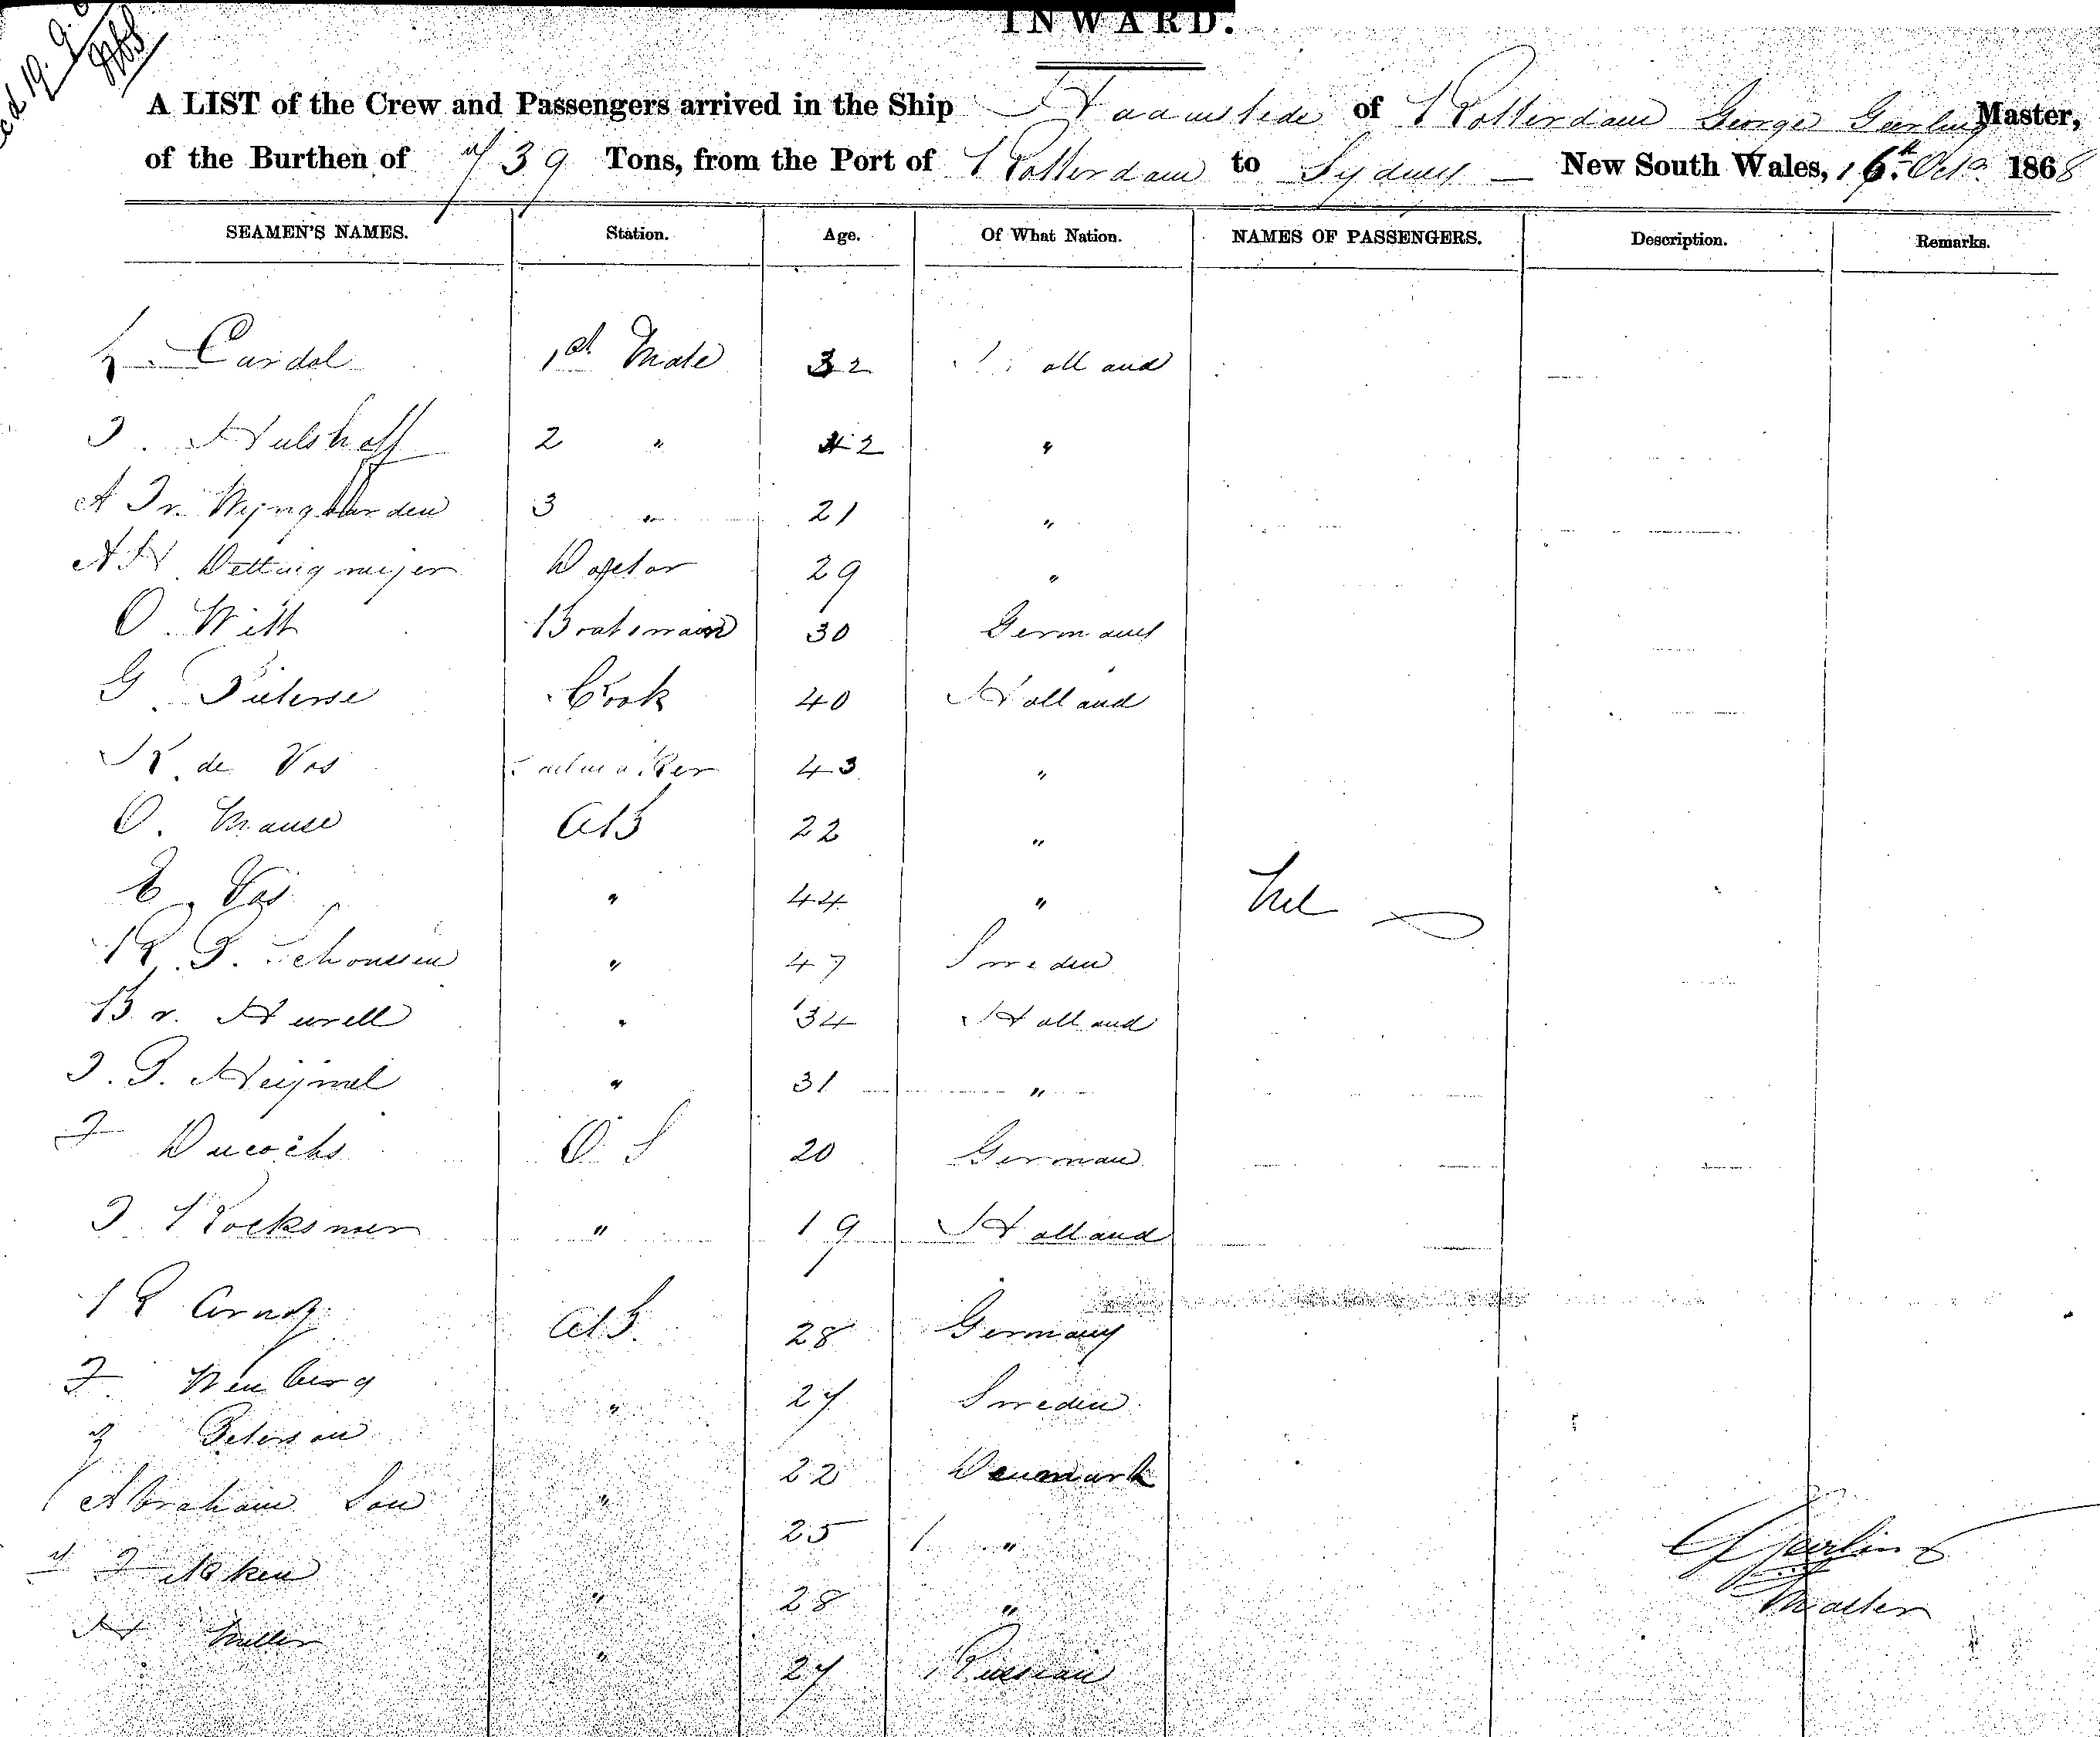 INWARD.
A LIST of the Crew and Passengers arrived in the Ship Haamstede of Rotterdam George Gerling Master,
of the Burthen of 739 Tons, from the Port of Rotterdam to Sydney — New South Wales, 16th Octo 1868
SEAMEN'S NAMES. Station. Age. Of What Nation. NAMES OF PASSENGERS. Description. Remarks.
Cardol 1st Mate 32 Holland
J. Hulshoff 2 " 42 "
A Jr. Wijngaarden 3 " 21 "
A H Dettingmeijer Doctor 29 "
O. Witt Boatswain 30 Germany
G. Pieterse Cook 40 Holland
K. de Vos Sailmaker 43 "
O. Mause AB 22 "
E. Vos " 44 " Nil
R. P. Schoussen " 47 Sweden
B. v. Hurell " 34 Holland
J. P. Heijmel " 31 "
F Ducochs O S 20 German
J. Rocksmer " 19 Holland
R Arndz AB. 28 Germany
F. Wenberg " 27 Sweden
Peterson 22 Denmark
Abraham Son " 25 "
F Aken " 28 "
H Muller " 27 Russian
G Gerling
Master